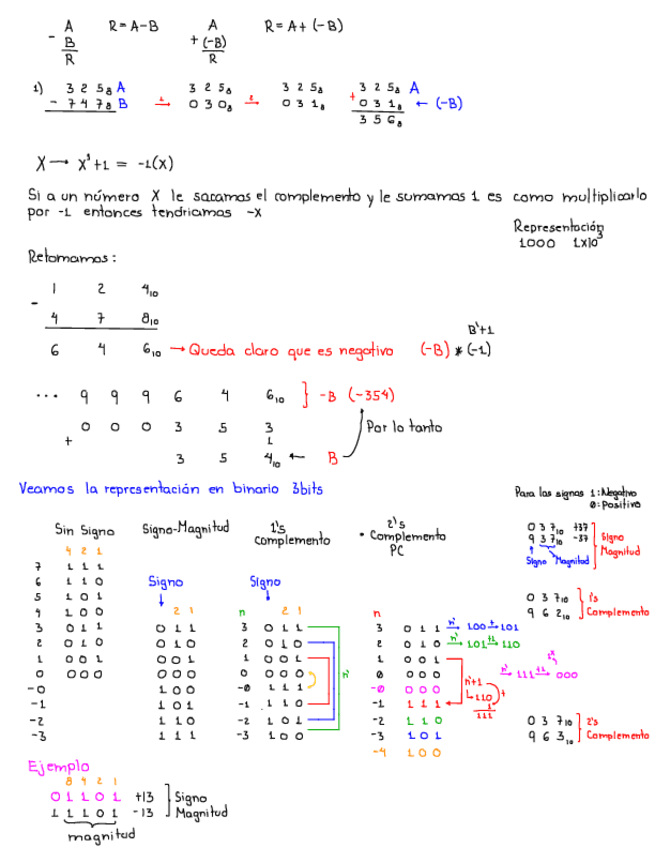 A R=A-B A R=A+(-B)
- B + (-B)
R R
1) 3 2 5₈ A 3 2 5₈ 3 2 5₈ 3 2 5₈ A
- 7 4 7₈ B 1→ 0 3 0₈ 2→ 0 3 1₈ + 0 3 1₈ ← (-B)
3 5 6₈
X → X'+1 = -1(X)
Si a un número X le sacamos el complemento y le sumamos 1 es como multiplicarlo
por -1 entonces tendriamos -X
Representación
1000 1x10³
Retomamos:
1 2 4₁₀
-
4 7 8₁₀
B'+1
6 4 6₁₀ → Queda claro que es negativo (-B) * (-1)
... 9 9 9 6 4 6₁₀ } -B (-354)
0 0 0 3 5 3 Por lo tanto
+ 1
3 5 4₁₀ ← B
Veamos la representación en binario 3bits
Para los signos 1:Negativo
0:Positivo
Sin Signo Signo-Magnitud 1's Complemento • 2's Complemento PC
0 3 7₁₀ +37
9 3 7₁₀ -37
Signo Magnitud
Signo Magnitud
4 2 1
7 1 1 1
6 1 1 0
5 1 0 1
4 1 0 0
3 0 1 1
2 0 1 0
1 0 0 1
0 0 0 0
-0
-1
-2
-3
Signo
2 1
0 1 1
0 1 0
0 0 1
0 0 0
1 0 0
1 0 1
1 1 0
1 1 1
Signo
n 2 1
3 0 1 1
2 0 1 0
1 0 0 1
0 0 0 0
-0 1 1 1
-1 1 1 0
-2 1 0 1
-3 1 0 0
n'
n
3 0 1 1 n'→ 100 +1→ 101
2 0 1 0 n'→ 101 +1→ 110
1 0 0 1
0 0 0 0 n'→ 111 +1→ 000
-0 0 0 0
-1 1 1 1
-2 1 1 0
-3 1 0 1
-4 1 0 0
n'+1
110
+
1
111
0 3 7₁₀ 1's
9 6 2₁₀ Complemento
0 3 7₁₀ 2's
9 6 3₁₀ Complemento
Ejemplo
8 4 2 1
0 1 1 0 1 +13 Signo
1 1 1 0 1 -13 Magnitud
magnitud